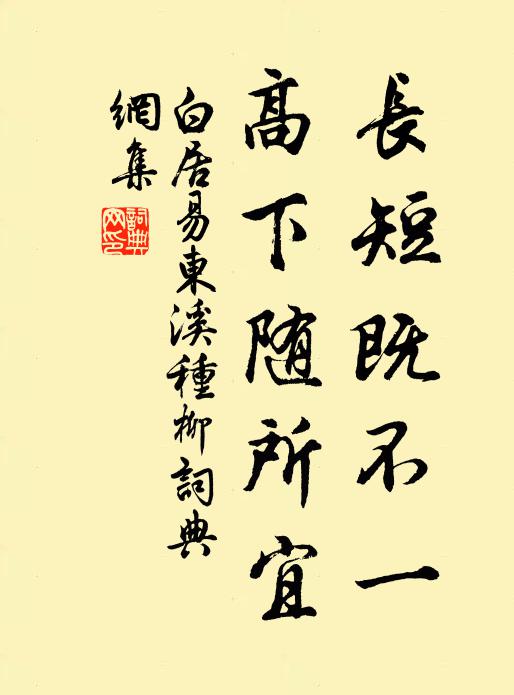 長短既不一
高下随所宜
白居易東溪種柳詞典
網集
詞典網印